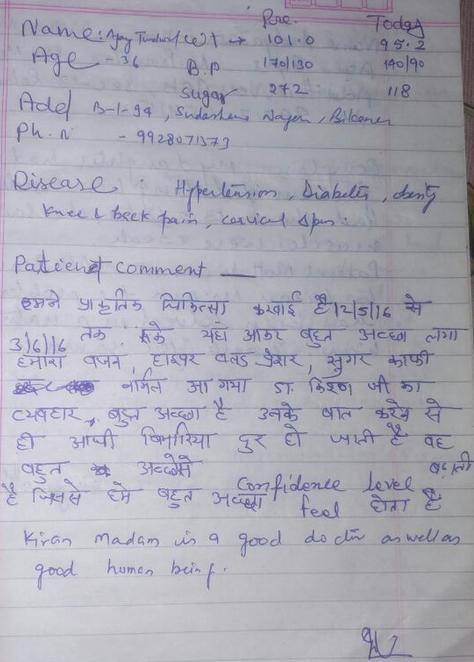 Pre. Today
Name: Ajay (wt → 101.0 95.2
Age - 36 B.P 170/130 140/90
Sugar 272 118
Add B-1-94, Sudarshana Nagar, Bikaner
Ph. n - 9928071373
Disease : Hypertension, Diabetes, obesity
Knee & back pain, cervical spon.
Patient comment —
हमने प्राकृतिक चिकित्सा करवाई है 12/5/16 से
3/6/16 तक. यहां आकर बहुत अच्छा लगा
हमारा वजन, हाइपर ब्लड प्रेशर, सुगर काफी
आ गया डा. किरण जी का
व्यवहार, बहुत अच्छा है उनके बात करने से
ही आधी बिमारिया दुर हो जाती है वह
बहुत अच्छेसे Confidence level
है जिससे हमे बहुत अच्छा feel होता है
Kiran Madam is a good doctor as well as
good human being.